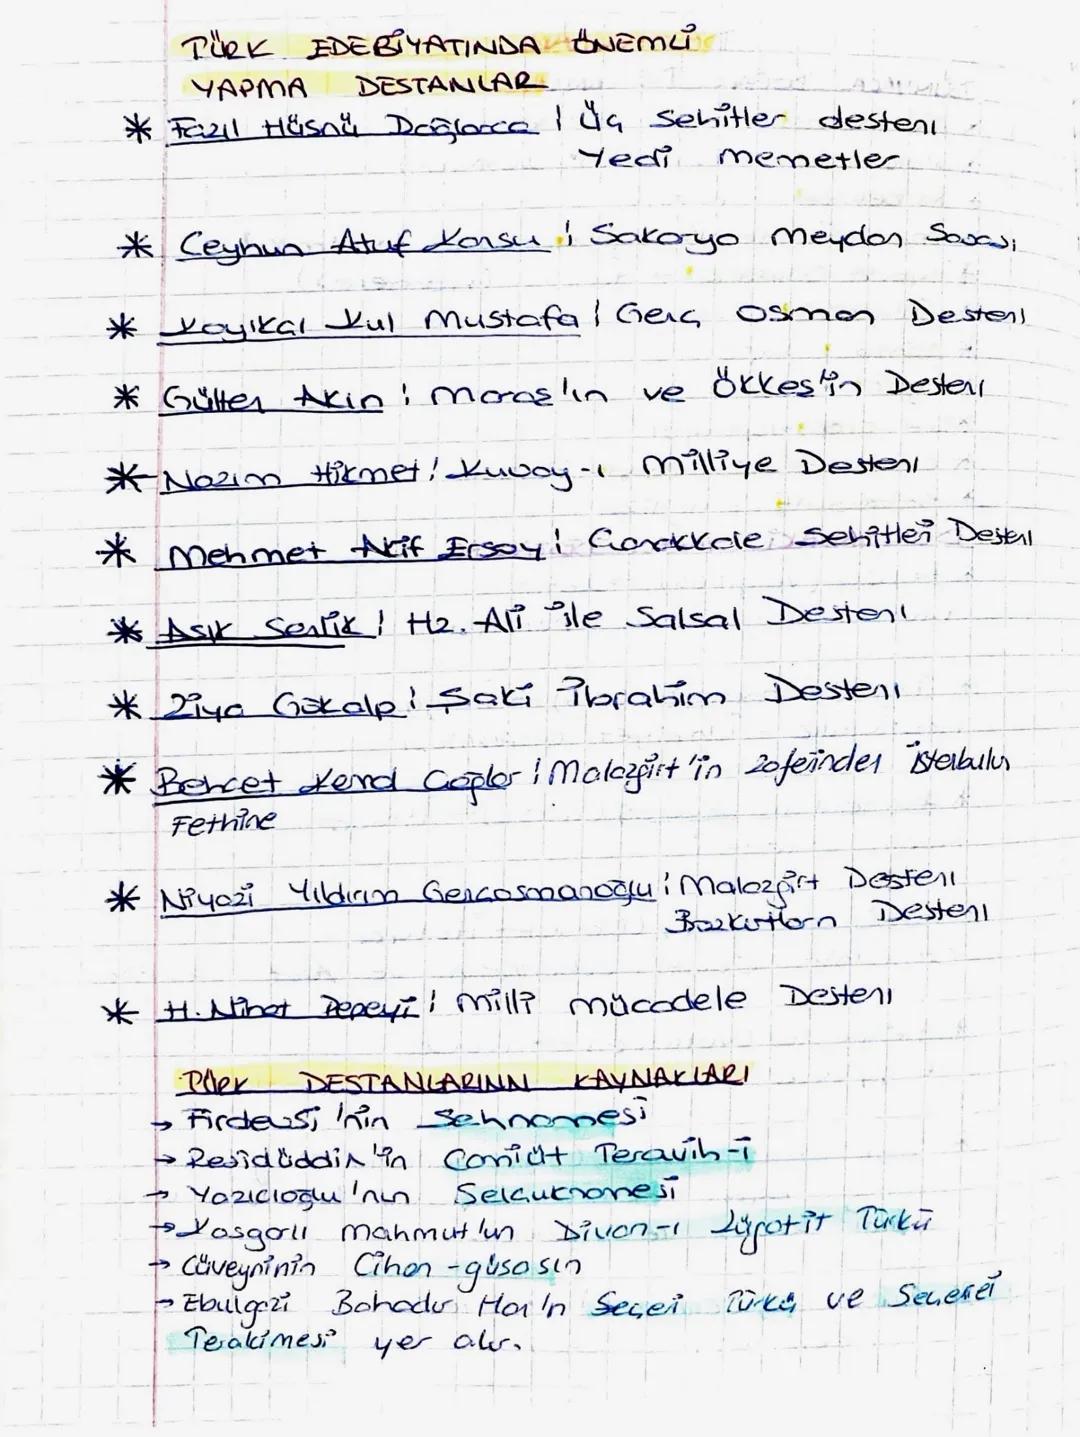 TÜRK EDEBİYATINDA ÖNEMLİ
YAPMA DESTANLAR
* Fazıl Hüsnü Dağlarca : Üç Şehitler destanı
Yedi memetler
* Ceyhun Atuf Kansu : Sakarya Meydan Savaşı
* Kayıkçı Kul Mustafa : Genç Osman Destanı
* Gülten Akın : Maraş'ın ve Ökkeş'in Destanı
* Nazım Hikmet : Kuvay-ı Milliye Destanı
* Mehmet Akif Ersoy : Çanakkale Şehitleri Destanı
* Aşık Şenlik : Hz. Ali ile Salsal Destanı
* Ziya Gökalp : Şaki İbrahim Destanı
* Behçet Kemal Çağlar : Malazgirt'in zaferinden İstanbulun
Fethine
* Niyazi Yıldırım Gençosmanoğlu : Malazgirt Destanı
Bozkurtların Destanı
* H. Nihat Pepeyi : Milli mücadele Destanı
TÜRK DESTANLARININ KAYNAKLARI
→ Firdevsi'nin Şehnamesi
→ Reşidüddin'in Camiüt Teravih-i
→ Yazıcıoğlu'nun Selçuknamesi
→ Kaşgarlı Mahmut'un Divan-ı Lügatit Türkü
→ Cüveyninin Cihan-güşasın
→ Ebulgazi Bahadır Han'ın Şecei Türkü ve Şecerei
Terakimesi yer alır.